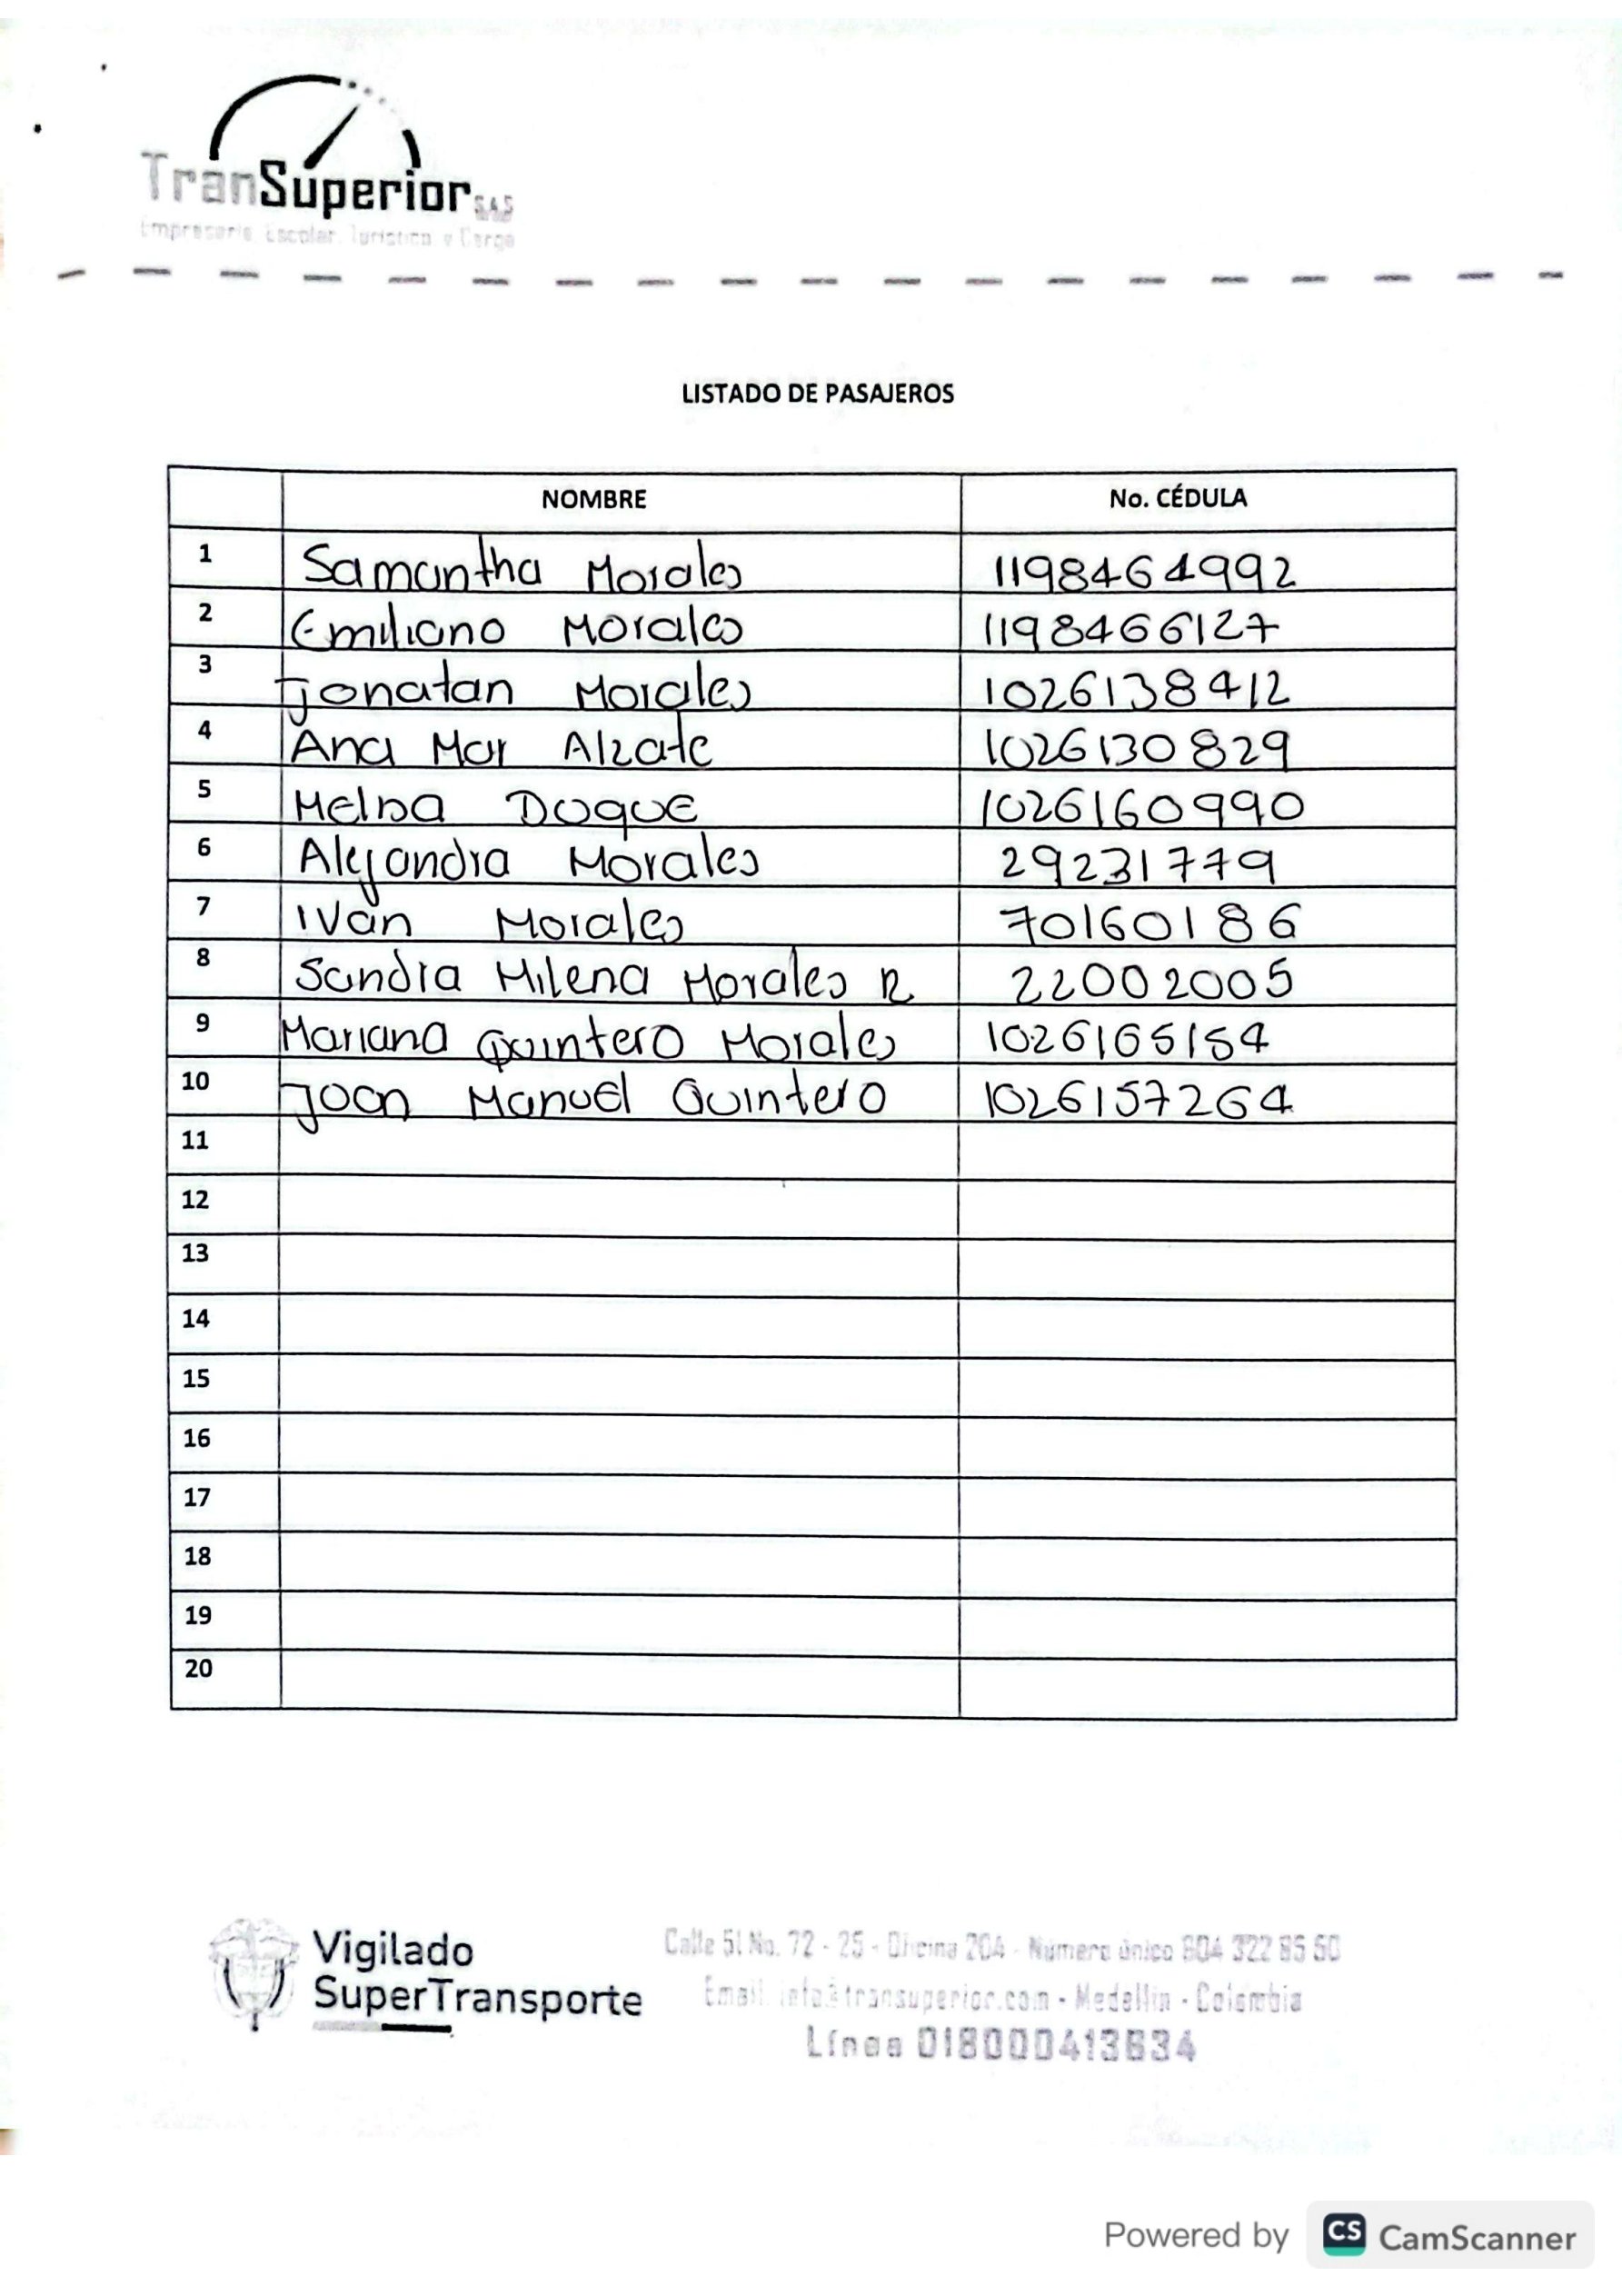 TranSuperior S.A.S
Empresaria, Escolar, Turístico y Carga
LISTADO DE PASAJEROS
NOMBRE No. CÉDULA
1 Samantha Morales 1198464992
2 Emiliano Morales 1198466127
3 Jonatan Morales 1026138412
4 Ana Mar Alzate 1026130829
5 Melba Duque 1026160990
6 Alejandra Morales 29231779
7 Ivan Morales 70160186
8 Sandra Milena Morales R 22002005
9 Mariana Quintero Morales 1026165154
10 Joan Manuel Quintero 1026157264
11
12
13
14
15
16
17
18
19
20
Vigilado
SuperTransporte
Calle 51 No. 72 - 25 - Oficina 204 - Número único 604 322 85 50
Email. info@transuperior.com - Medellin - Colombia
Línea 018000413634
Powered by CS CamScanner